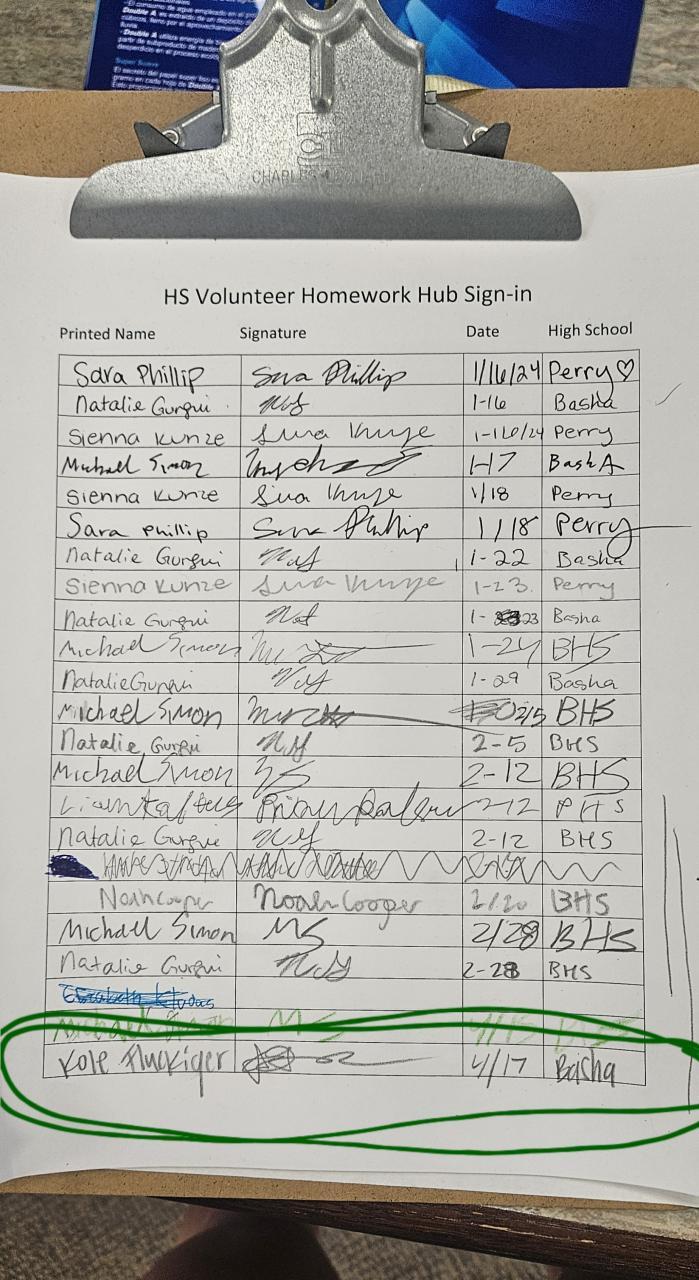 Double A
Super Suave
CHARLES LEONARD
HS Volunteer Homework Hub Sign-in
Printed Name Signature Date High School
Sara Phillip Sara Phillip 1/16/24 Perry♡
Natalie Gurgui 1-16 Basha
Sienna Kunze 1-16/24 Perry
Michael Simon 1-17 BashA
Sienna Kunze 1/18 Perry
Sara Phillip Sara Phillip 1/18 Perry
Natalie Gurgui 1-22 Basha
Sienna Kunze 1-23 Perry
Natalie Gurgui Nat 1-23 Basha
Michael Simon 1-24 BHS
Natalie Gurgui 1-29 Basha
Michael Simon 02/5 BHS
Natalie Gurgui 2-5 BHS
Michael Simon MS 2-12 BHS
2-12 PHS
Natalie Gurgui 2-12 BHS
Noah Cooper Noah Cooper 2/20 BHS
Michael Simon MS 2/28 BHS
Natalie Gurgui 2-28 BHS
Michael Simon MS 4/15 BHS
Kole Fluckiger 4/17 Basha